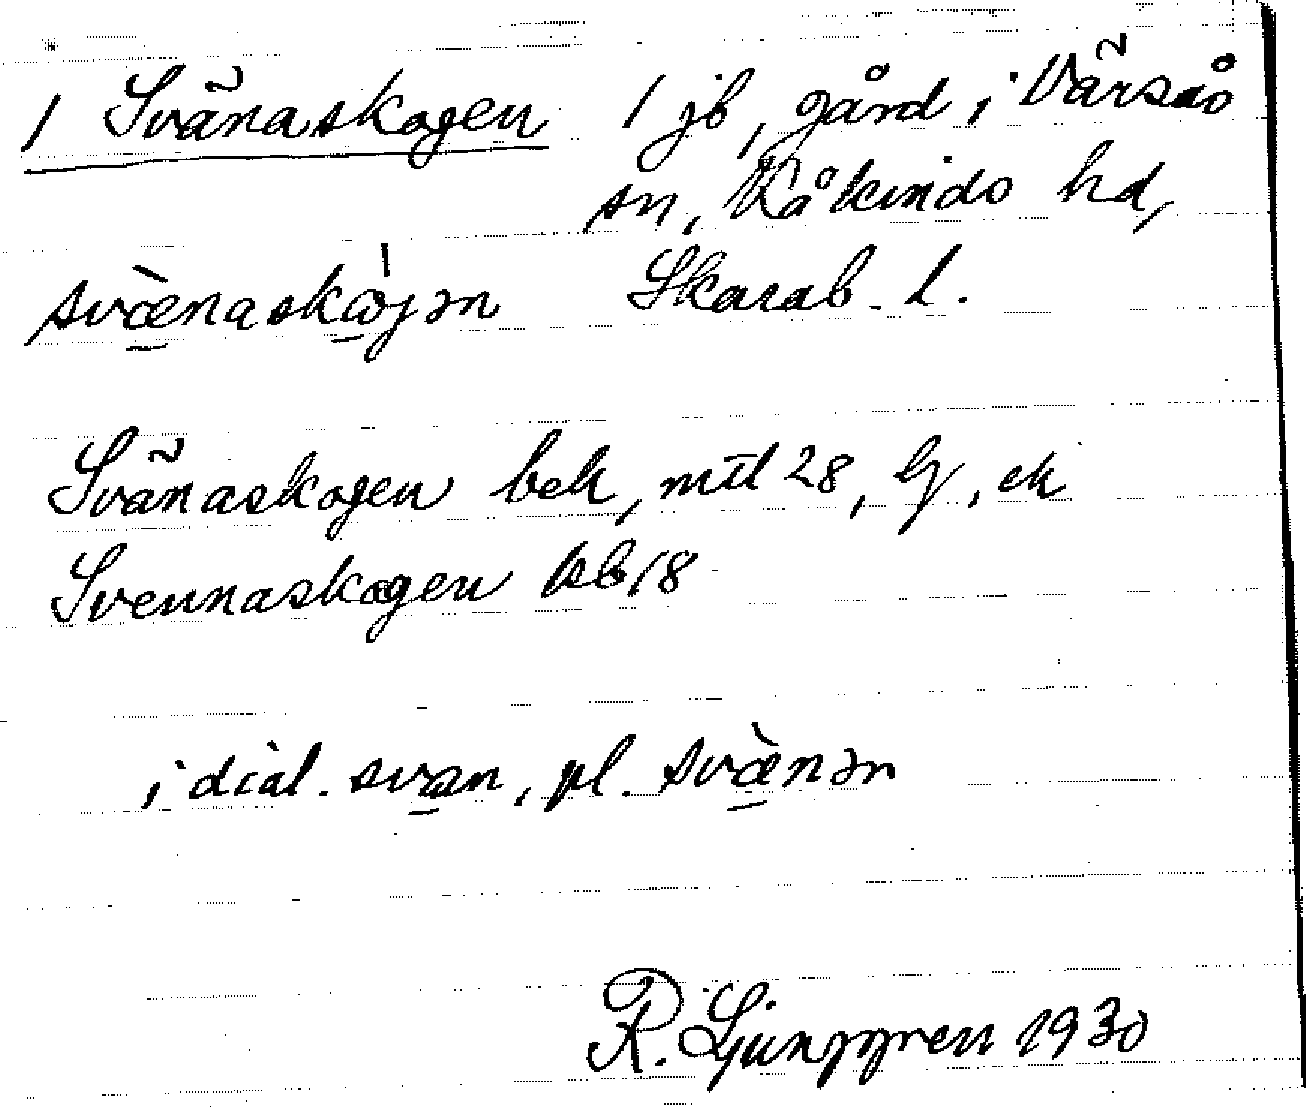 1 Svänaskogen 1 jb, gård i Värsås
sn, Kåkinds hd,
svæ̀naskòjən Skarab. l.
Svänaskogen bek, mtl 28, Gj, ek
Svennaskogen kb 18
i dial. svæn, pl. svæ̀nər
R. Ljunggren 1930